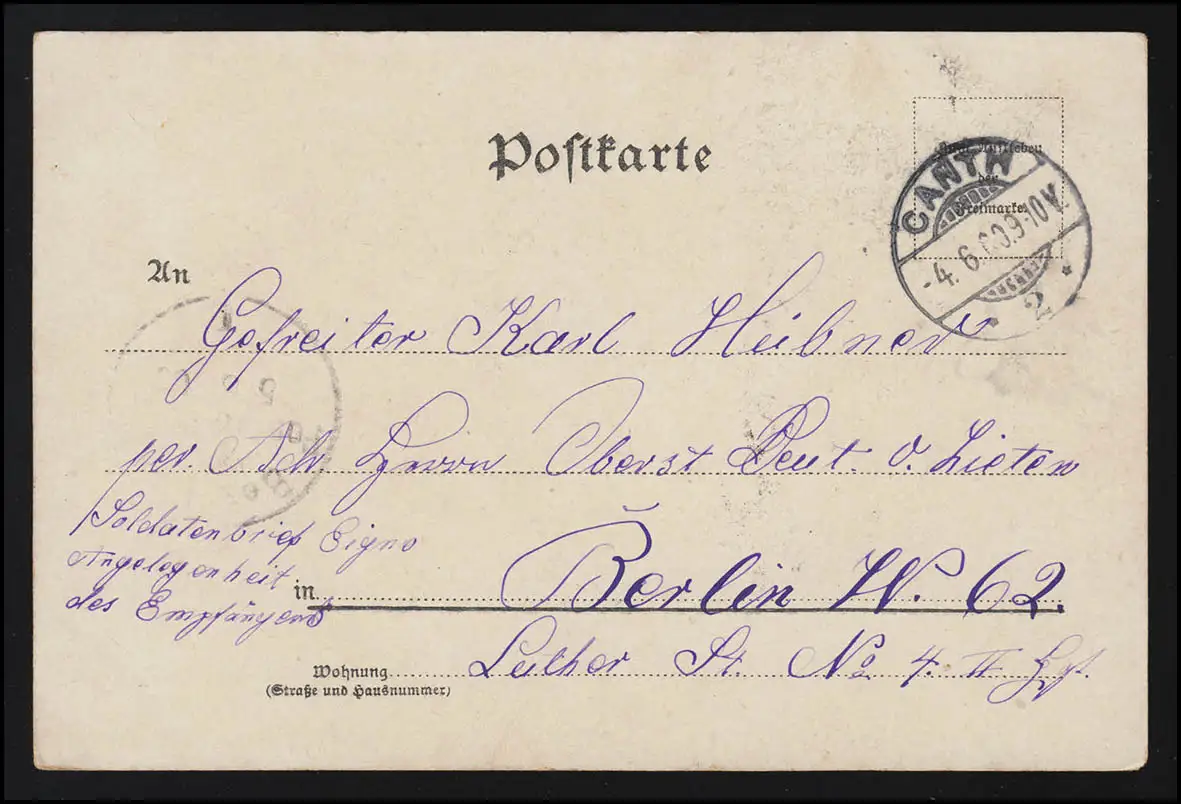 Postkarte
der
Freimarke
CANTH
-4.6.00.9-10V.
* 2 *
An
Gefreiter Karl Hübner
per. Adr. Herrn Oberst Leut. v. Zieten
Soldatenbrief Eigne
Angelegenheit
des Empfängers
in Berlin W. 62.
Wohnung Luther St. No 4. II
(Straße und Hausnummer)